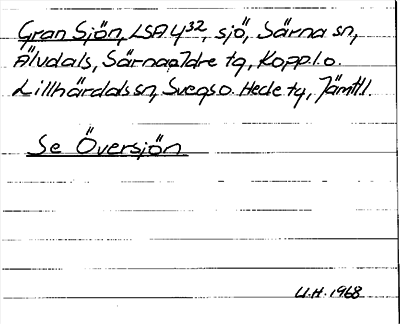 Gran Sjön, LSA 4³², sjö, Särna sn,
Älvdals, Särna o Idre tg, Kopp. l. o.
Lillhärdals sn, Svegs o. Hede tg, Jämtl.
Se Översjön
U.H. 1968